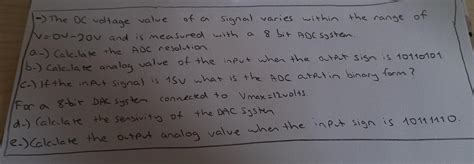 1-) The DC voltage value of a signal varies within the range of
V=0V-20V and is measured with a 8 bit ADC system.
a-) Calculate the ADC resolution.
b-) Calculate analog value of the input when the output sign is 10110101
c-) If the input signal is 15V what is the ADC output in binary form?
For a 8-bit DAC system connected to Vmax=12volts.
d-) Calculate the sensivity of the DAC system
e-) Calculate the output analog value when the input sign is 10111110.